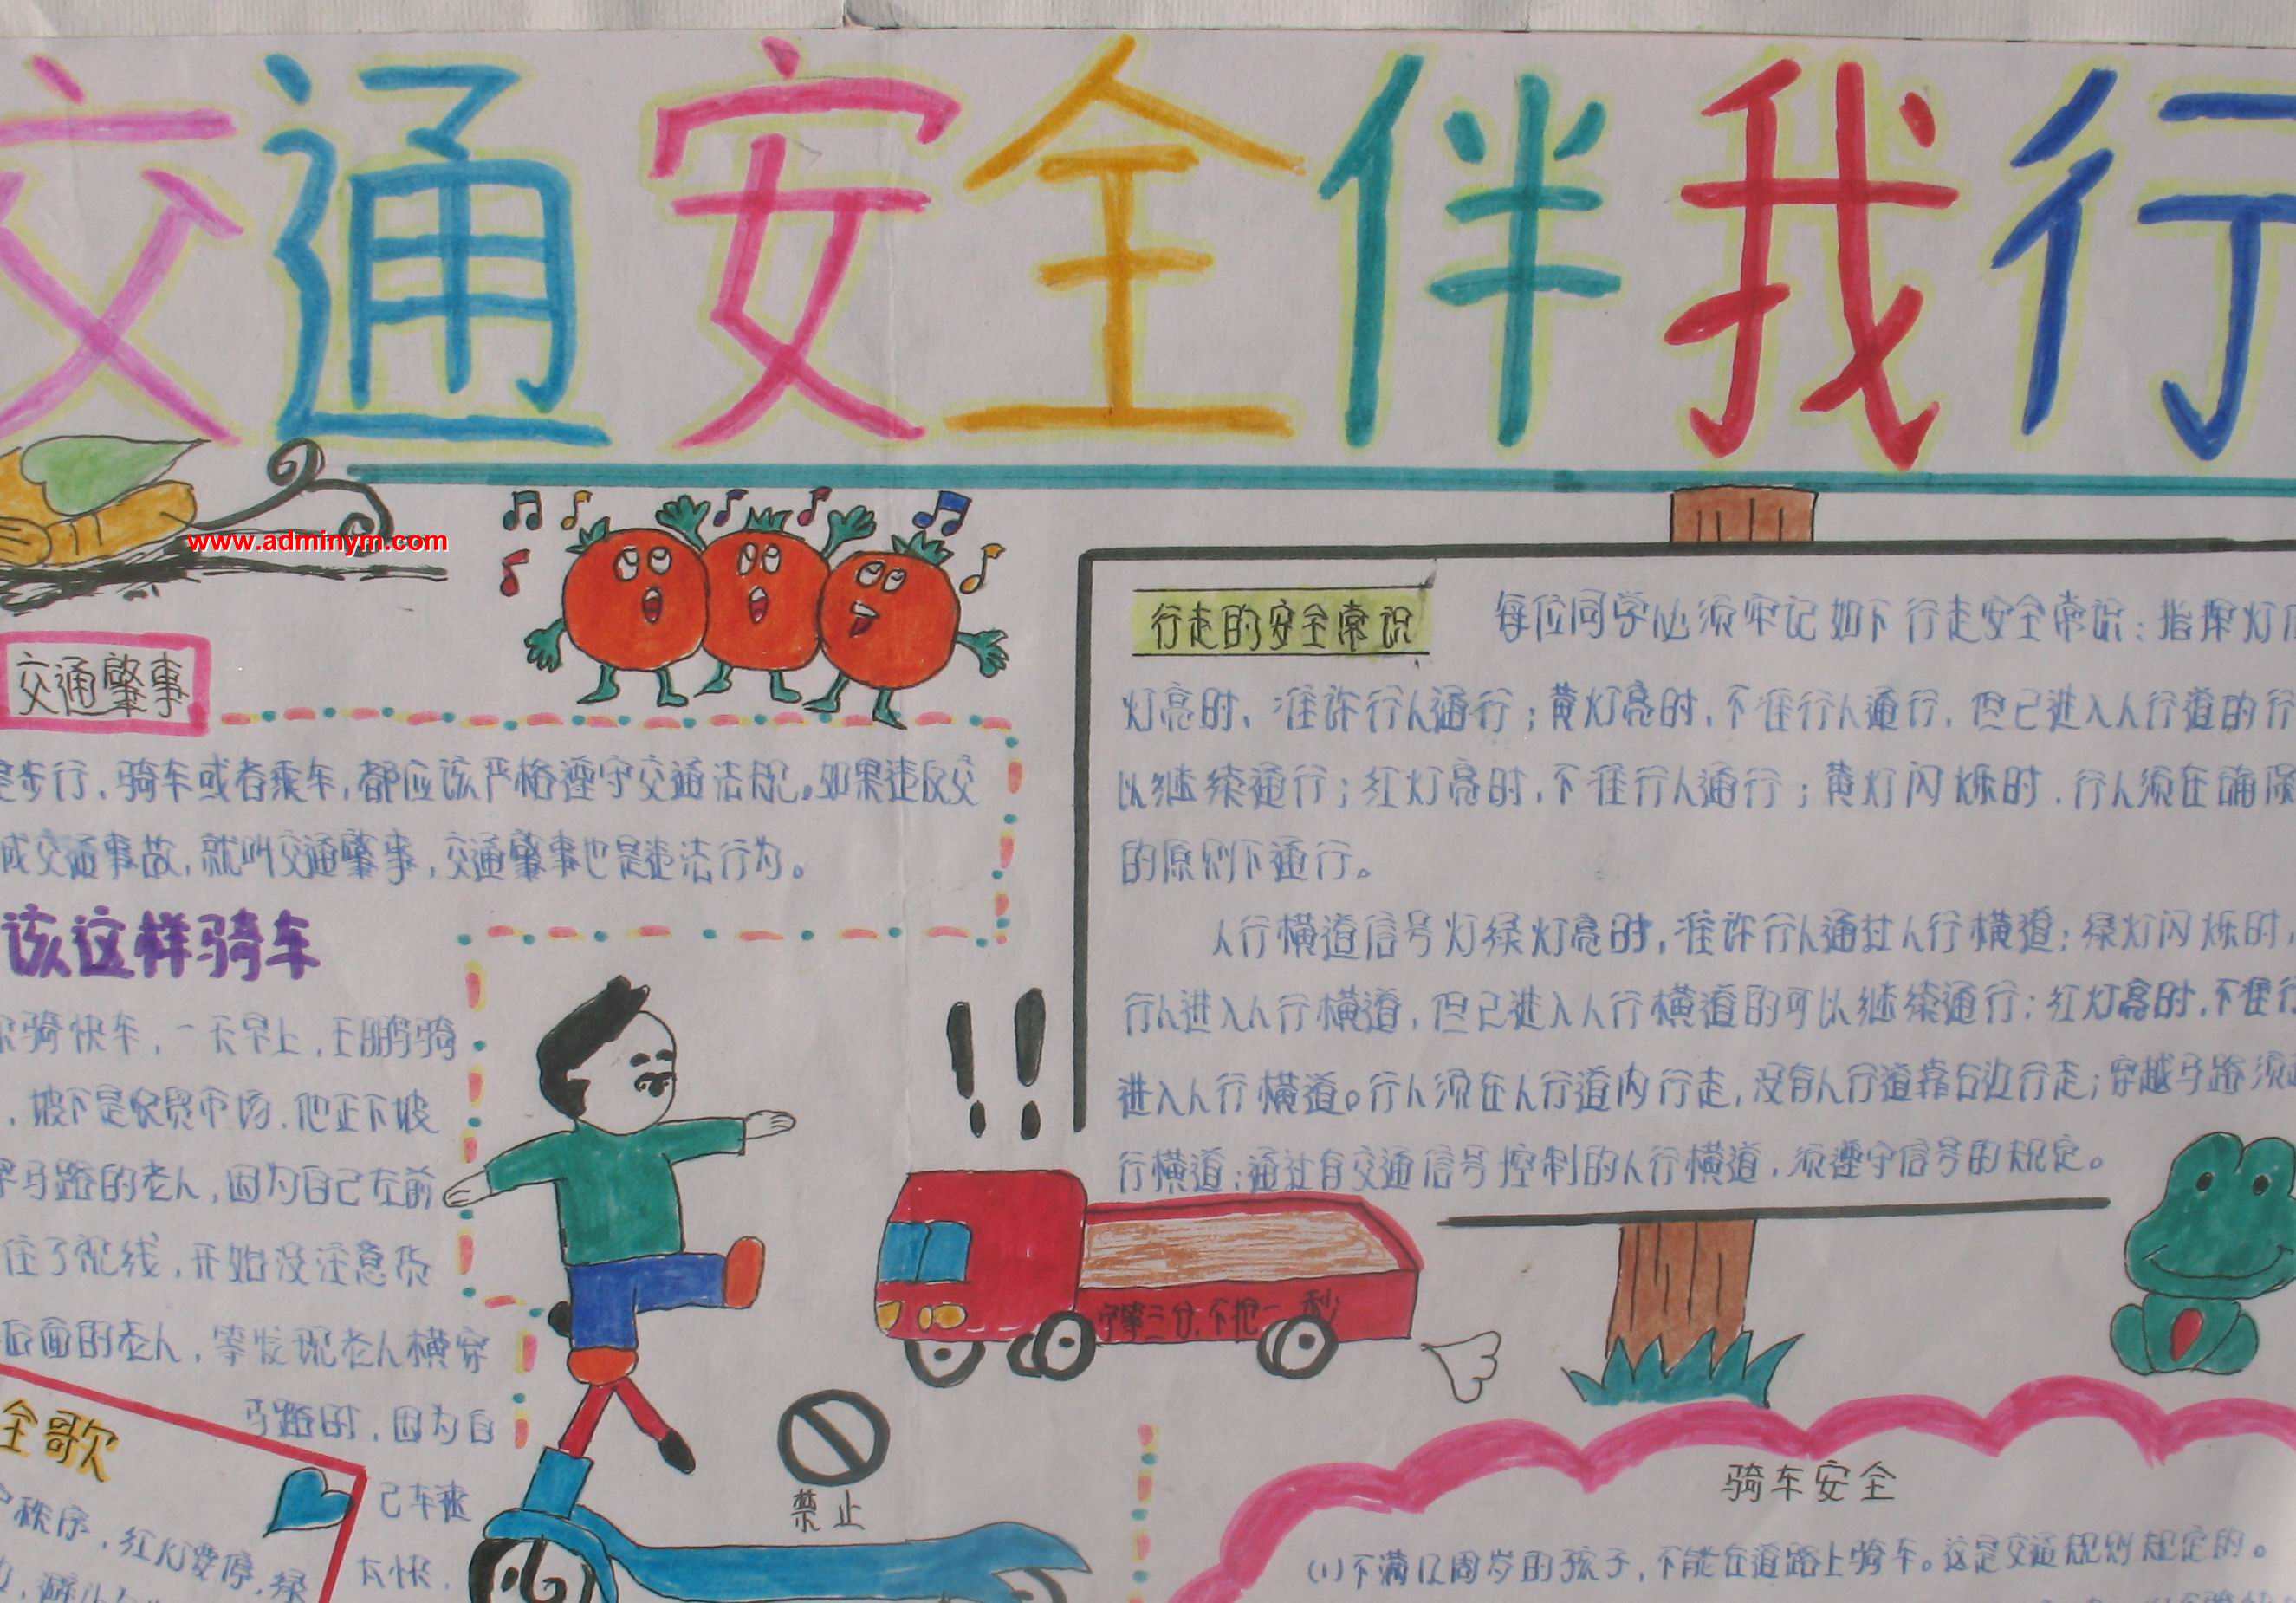 交通安全伴我行
www.adminym.com
交通肇事
是步行，骑车或者乘车，都应该严格遵守交通法规。如果违反交
成交通事故，就叫交通肇事，交通肇事也是违法行为。
该这样骑车
骑快车，一天早上，王鹏骑
，坡下是农贸市场，他正下坡
马路的老人，因为自己在前
住了视线，开始没注意
后面的老人，等发现老人横穿
马路时，因为自
己车速
太快，
全歌
秩序，红灯要停，绿
禁止
宁等三分，不抢一秒
行走的安全常识
每位同学必须牢记如下行走安全常识：指挥灯
灯亮时，准许行人通行；黄灯亮时，不准行人通行，但已进入人行道的行
以继续通行；红灯亮时，不准行人通行；黄灯闪烁时，行人须在确保
的原则下通行。
人行横道信号灯绿灯亮时，准许行人通过人行横道；绿灯闪烁时，
行人进入人行横道，但已进入人行横道的可以继续通行；红灯亮时，不准行
进入人行横道。行人须在人行道内行走，没有人行道靠右边行走；穿越马路须
行横道；通过有交通信号控制的人行横道，须遵守信号的规定。
骑车安全
(1)不满12周岁的孩子，不能在道路上骑车。这是交通规则规定的。